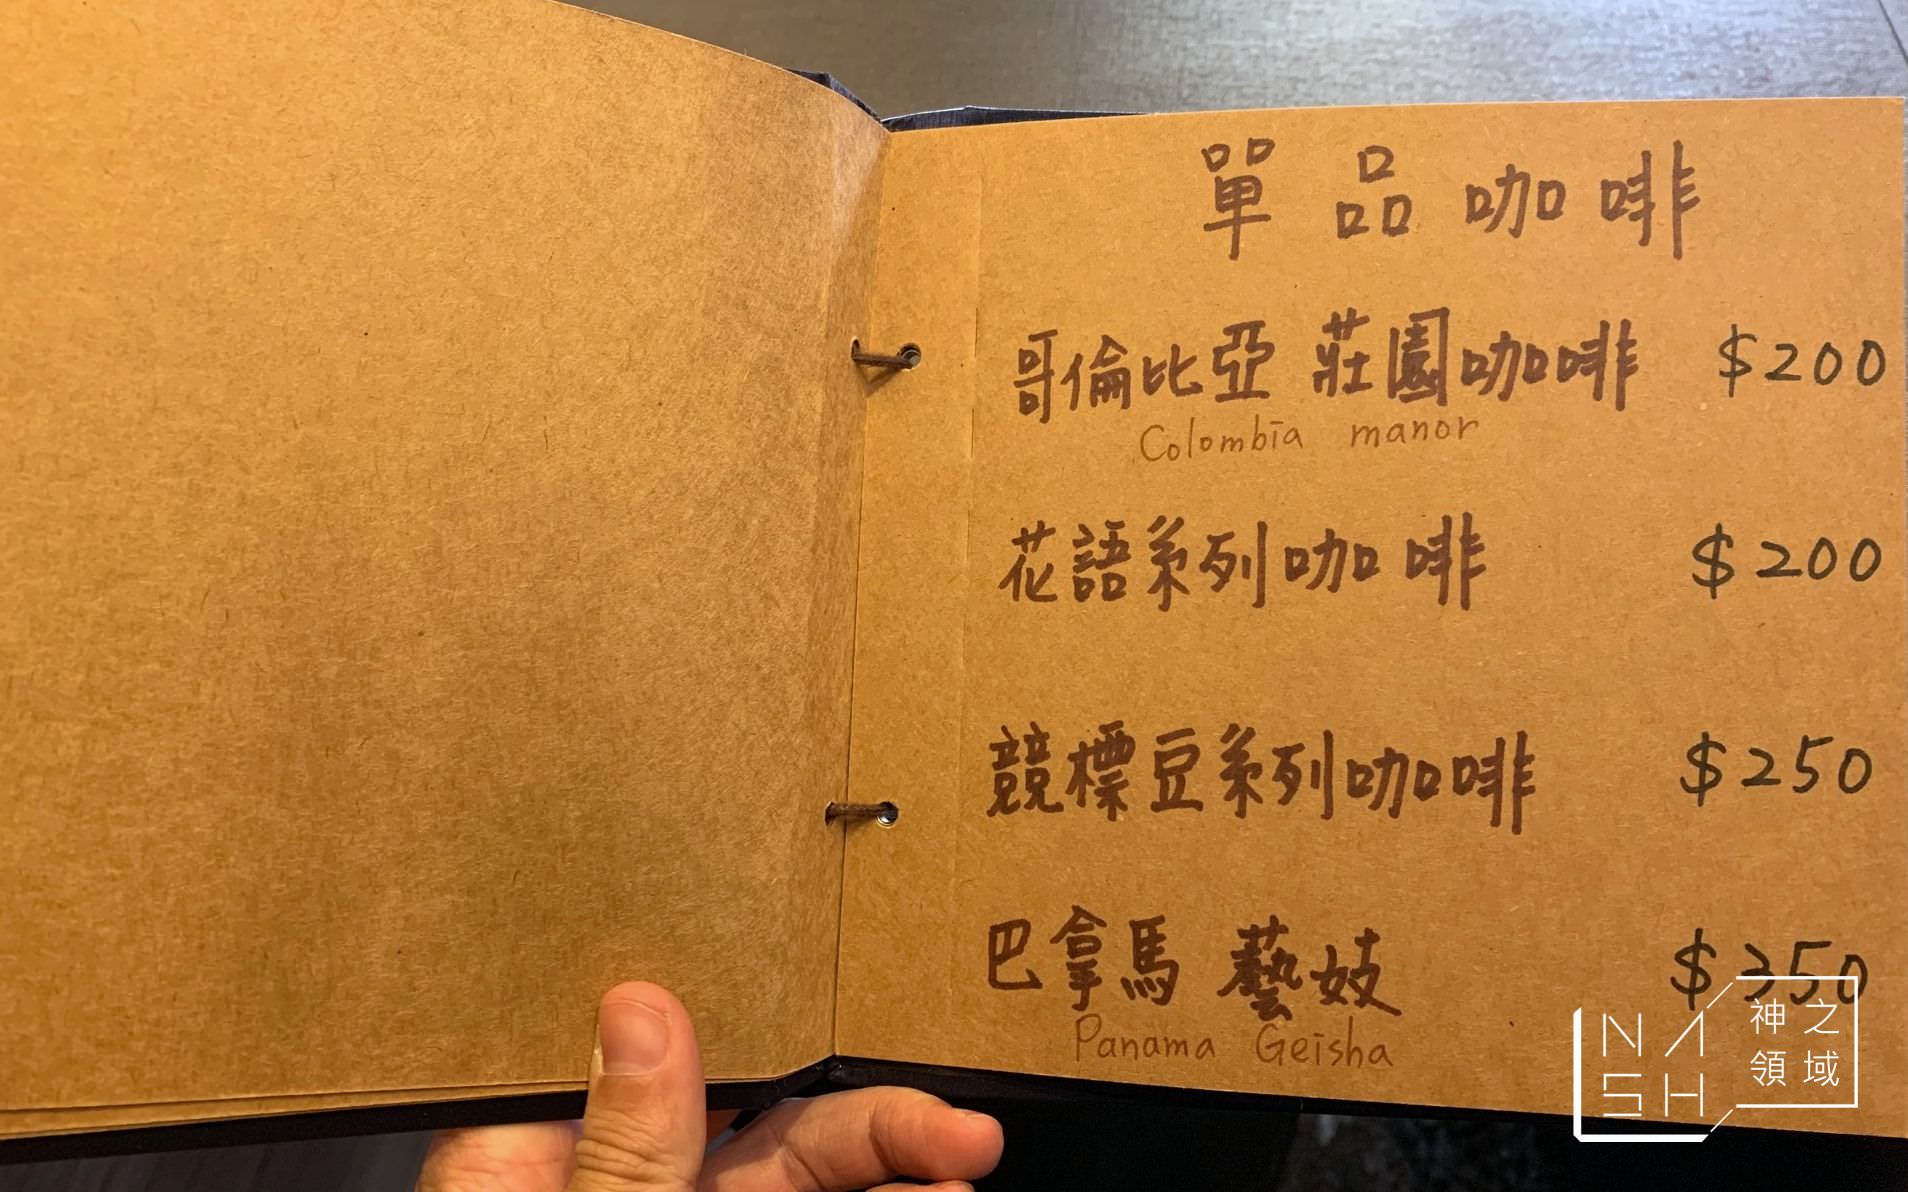 單品咖啡
哥倫比亞 莊園咖啡 $200
Colombia manor
花語系列咖啡 $200
競標豆系列咖啡 $250
巴拿馬 藝妓 $350
Panama Geisha
NASH 神之領域